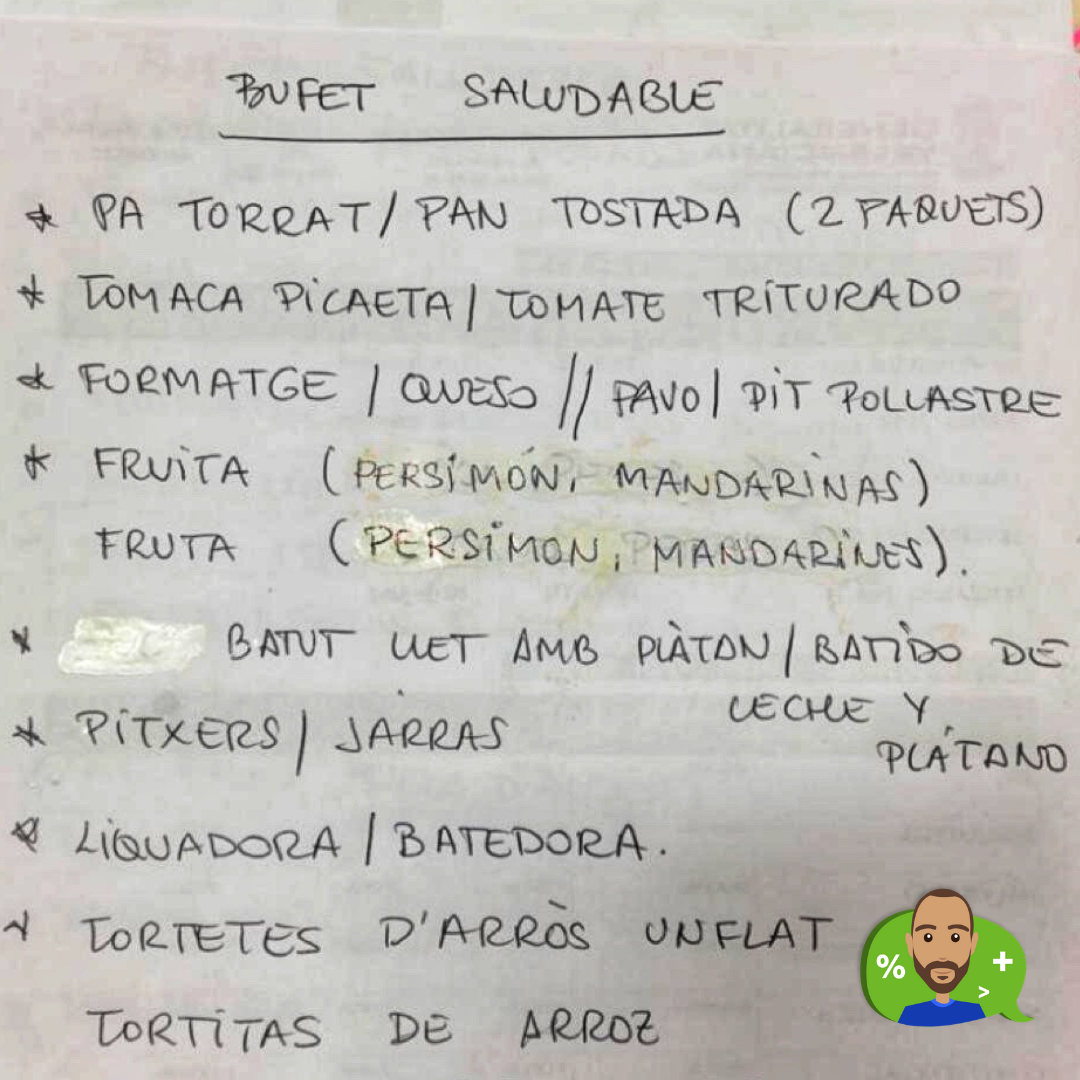 BUFET SALUDABLE
* PA TORRAT / PAN TOSTADA (2 PAQUETS)
* TOMACA PICAETA / TOMATE TRITURADO
* FORMATGE / QUESO // PAVO / PIT POLLASTRE
* FRUITA (PERSIMÓN, MANDARINAS)
FRUTA (PERSIMON, MANDARINES).
* BATUT LLET AMB PLÀTAN / BATIDO DE
LECHE Y
PLÁTANO
* PITXERS / JARRAS
* LIQUADORA / BATEDORA.
TORTETES D'ARRÒS UNFLAT
TORTITAS DE ARROZ
% + >